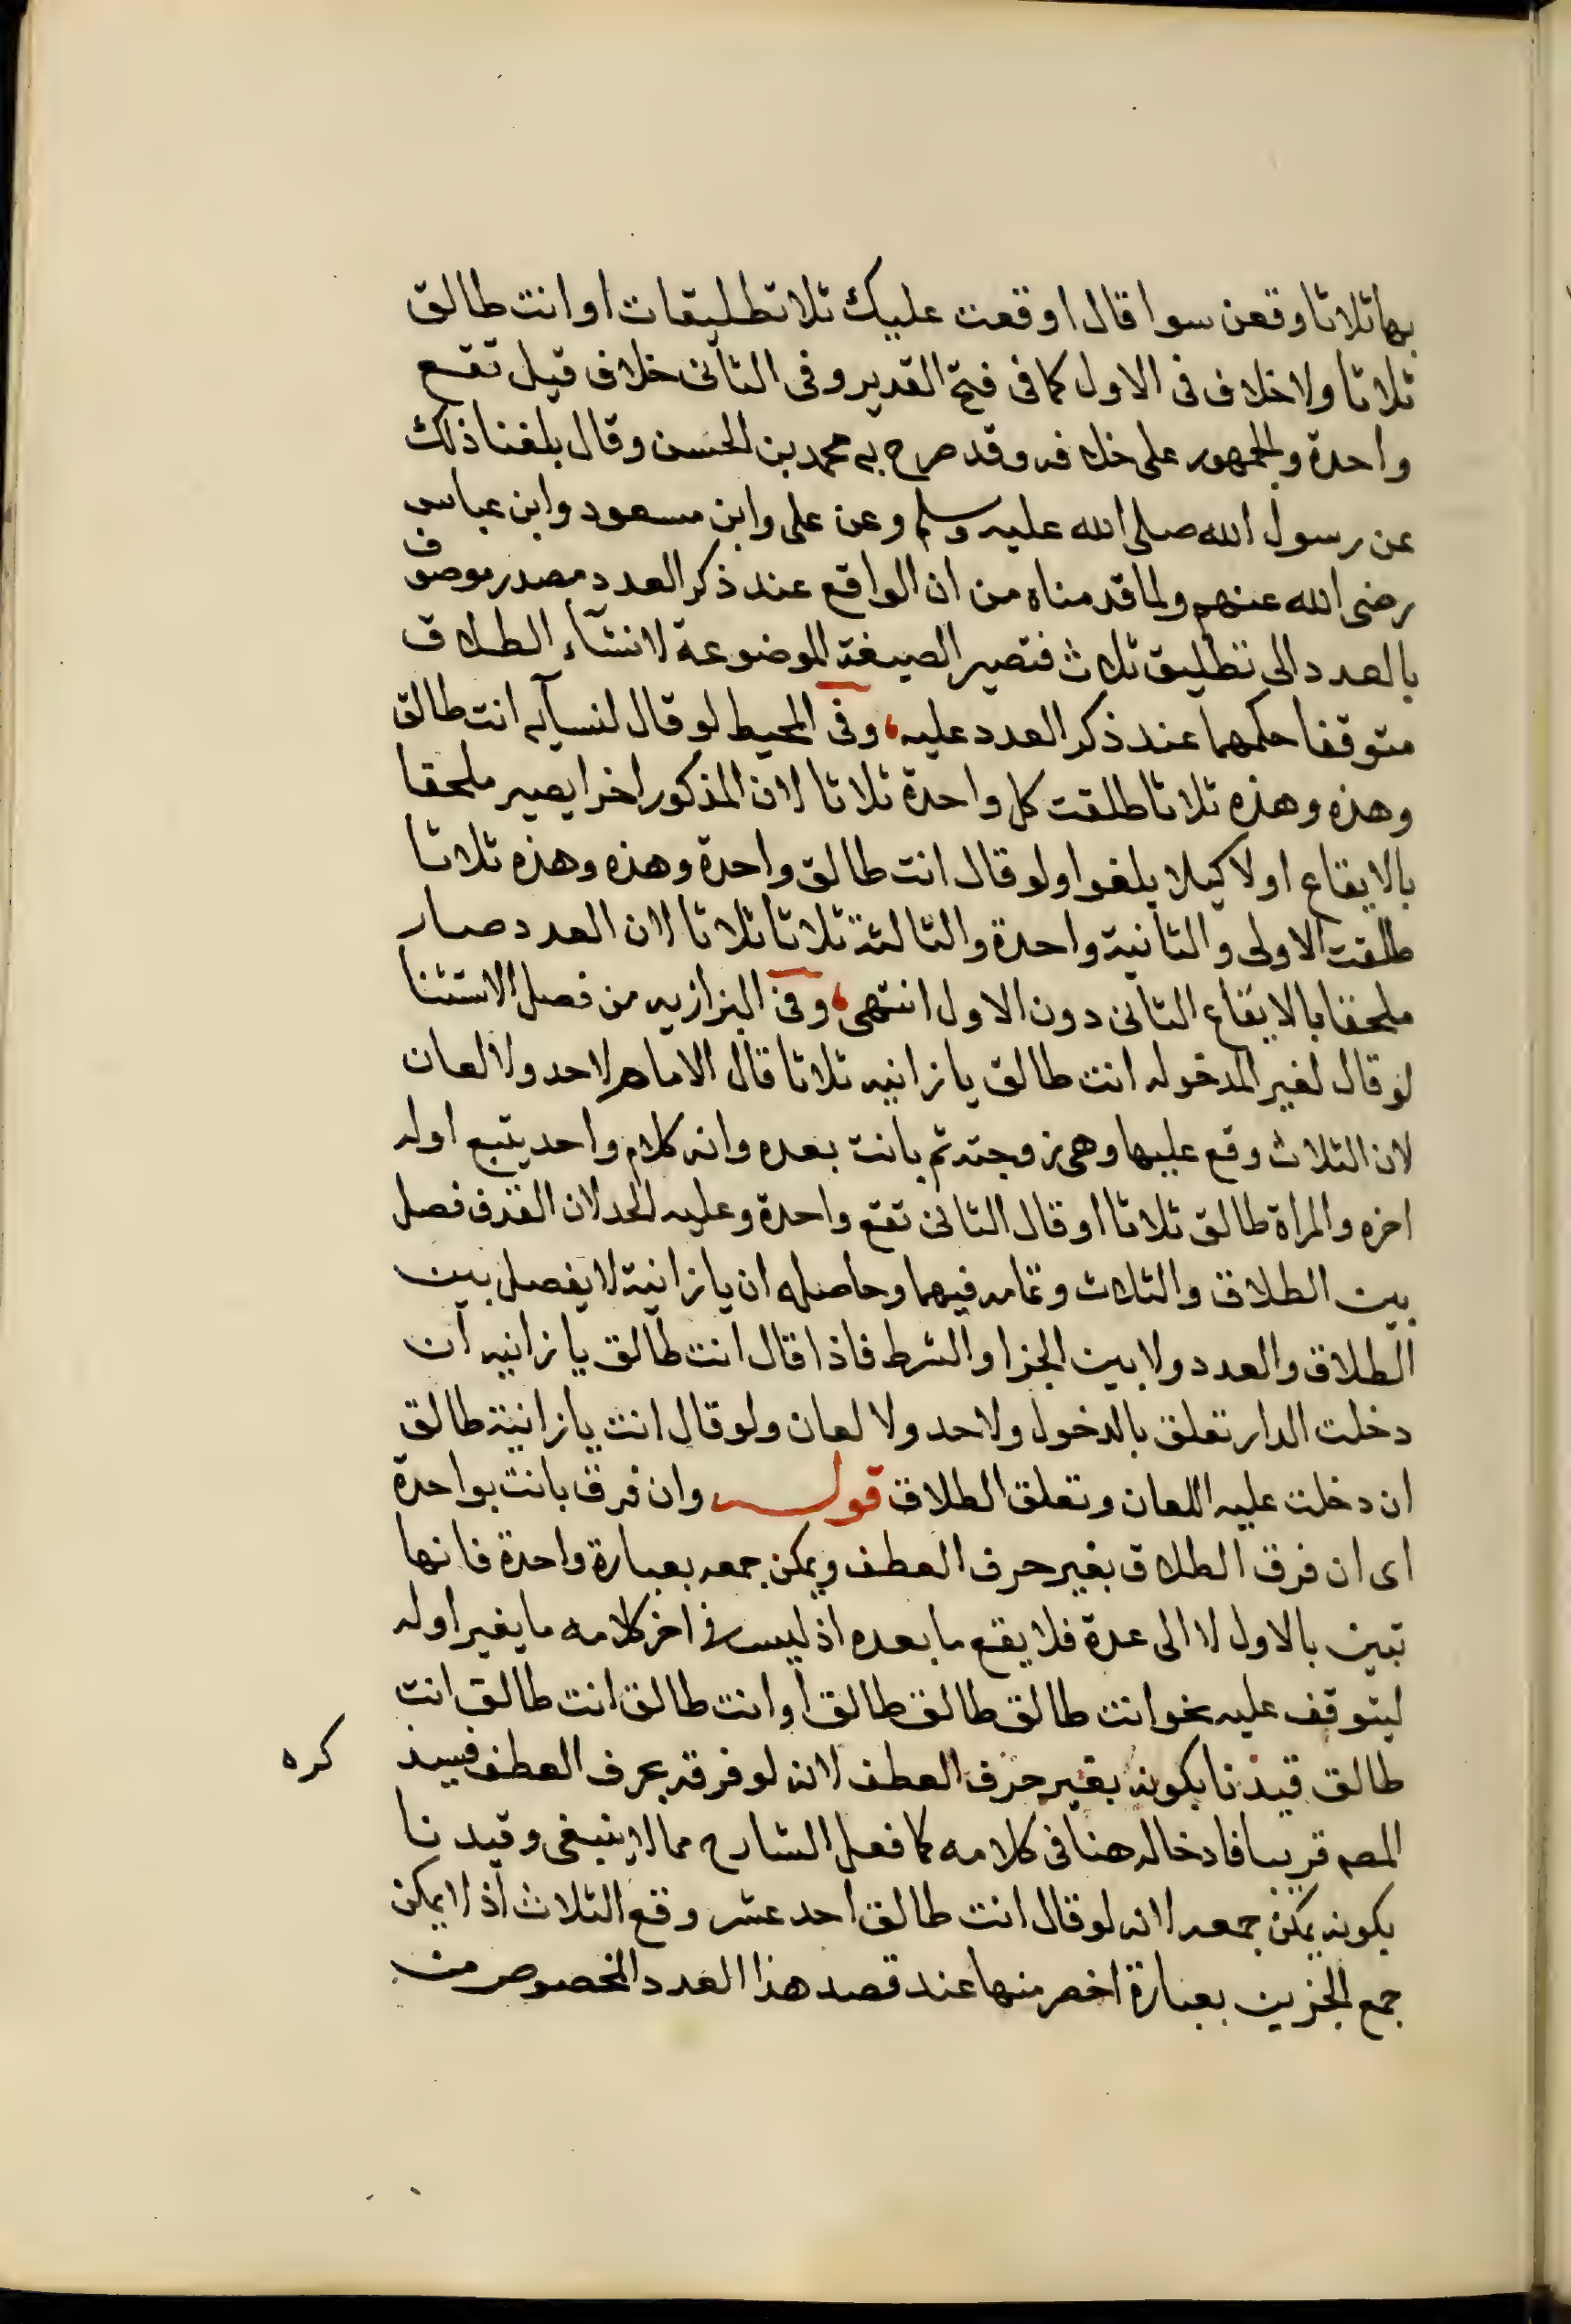 بها ثلاثا وقعن سوا قال اوقعت عليك ثلاث تطليقات او انت طالق
ثلاثا ولا خلاف فى الاول كما فى فتح القدير وفى الثانى خلاف قيل تقع
واحدة والجمهور على خلافه وقد صرح به محمد بن الحسن وقال بلغنا ذلك
عن رسول الله صلى الله عليه وسلم وعن على وابن مسعود وابن عباس
رضى الله عنهم ولما قدمناه من ان الواقع عند ذكر العدد مصدر موصوف
بالعدد الى تطليق ثلاث فتصير الصيغة الموضوعة لانشآء الطلاق
متوقفا حكمهما عند ذكر العدد عليه، وفى المحيط لو قال لنسآيه انت طالق
وهذه وهذه ثلاثا طلقت كل واحدة ثلاثا لان المذكور اخرا يصير ملحقا
بالايقاع اولا كيلا يلغوا ولو قال انت طالق واحدة وهذه وهذه ثلاثا
طلقت الاولى والثانية واحدة والثالثة ثلاثا ثلاثا لان العدد صار
ملحقا بالايقاع الثانى دون الاول انتهى، وفى البزازيه من فصل الاستثنا
لو قال لغير المدخوله انت طالق يا زانيه ثلاثا قال الامام لا حد ولا لعان
لان الثلاث وقع عليها وهى زوجته ثم بانت بعده وانه كلام واحد يتبع اوله
اخره والمراة طالق ثلاثا او قال الثانى تقع واحدة وعليه الحد لان القذف فصل
بين الطلاق والثلاث وتمامه فيهما وحاصله ان يا زانية لا يفصل بين
الطلاق والعدد ولا بين الجزا والشرط فاذا قال انت طالق يا زانيه ان
دخلت الدار تعلق بالدخول ولا حد ولا لعان ولو قال انت يا زانية طالق
ان دخلت عليه اللعان وتعلق الطلاق قوله وان فرق بانت بواحدة
اى ان فرق الطلاق بغير حرف العطف ويمكن جمعه بعبارة واحدة فانها
تبين بالاول لا الى عدة فلا يقع ما بعده اذ ليس فى اخر كلامه ما يغير اوله
ليتوقف عليه نحو انت طالق طالق طالق او انت طالق انت طالق انت
طالق قيدنا بكونه بغير حرف العطف لانه لو فرقه بحرف العطف فسيذ كره
المصم قريبا فادخاله هنا فى كلامه كما فعل الشارح مما لا ينبغى وقيدنا
بكونه يمكن جمعه لانه لو قال انت طالق احد عشر وقع الثلاث اذ لا يمكن
جمع الجزين بعبارة اخصر منها عند قصد هذا العدد المخصوص من